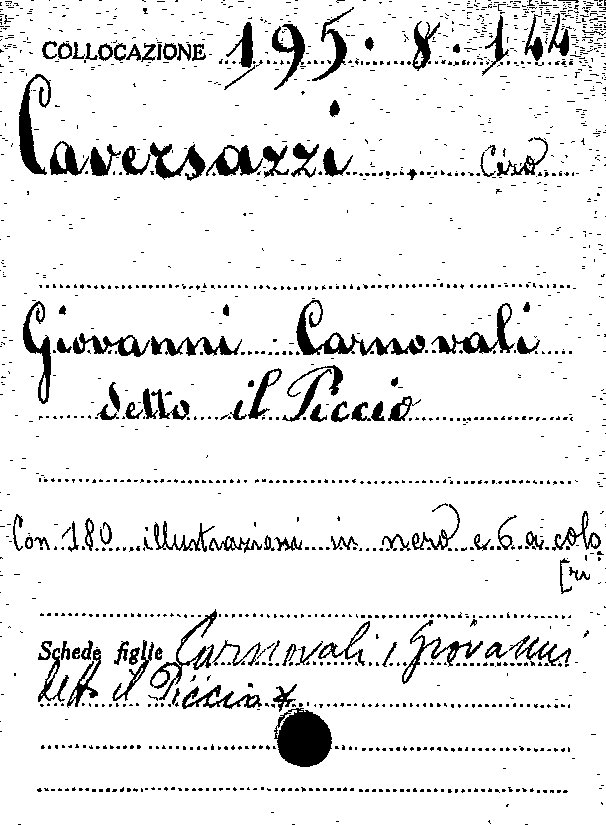 COLLOCAZIONE 195.8.144
Caversazzi, Ciro
Giovanni Carnovali
detto il Piccio
Con 180 illustrazioni in nero e 6 a colo
[ri
Schede figlie Carnovali, Giovanni
detto il Piccio *